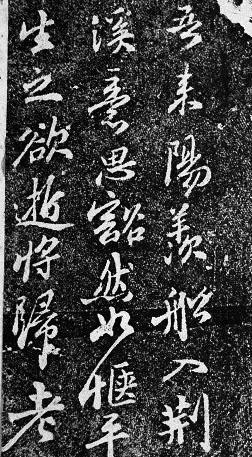 吾来陽羨船入荆
溪意思豁然如惬平
生之欲逝将歸老